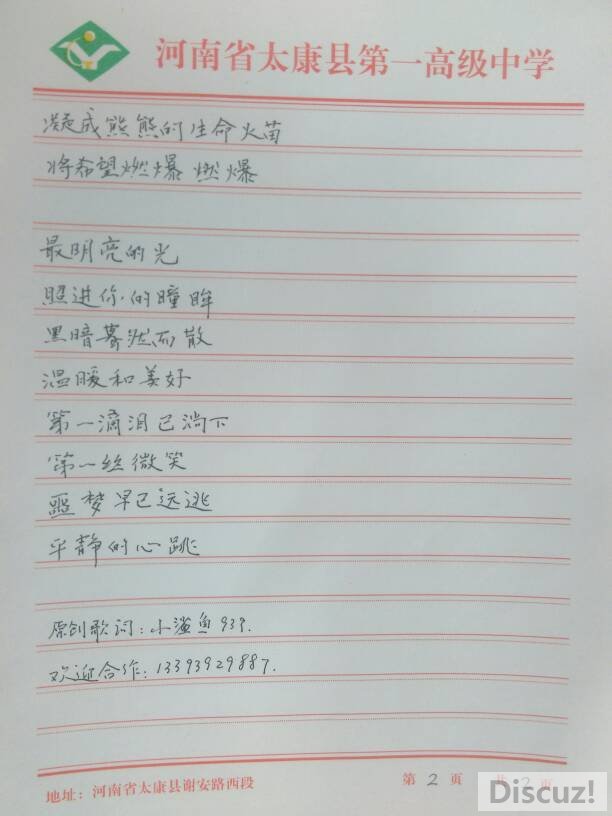 河南省太康县第一高级中学
凝成熊熊的生命火苗
将希望燃爆 燃爆
最明亮的光
照进你的瞳眸
黑暗蓦然而散
温暖和美好
第一滴泪已淌下
第一丝微笑
噩梦早已远逃
平静的心跳
原创歌词：小鲨鱼939.
欢迎合作：13393929887.
地址：河南省太康县谢安路西段
第 2 页 共 2 页
Discuz!